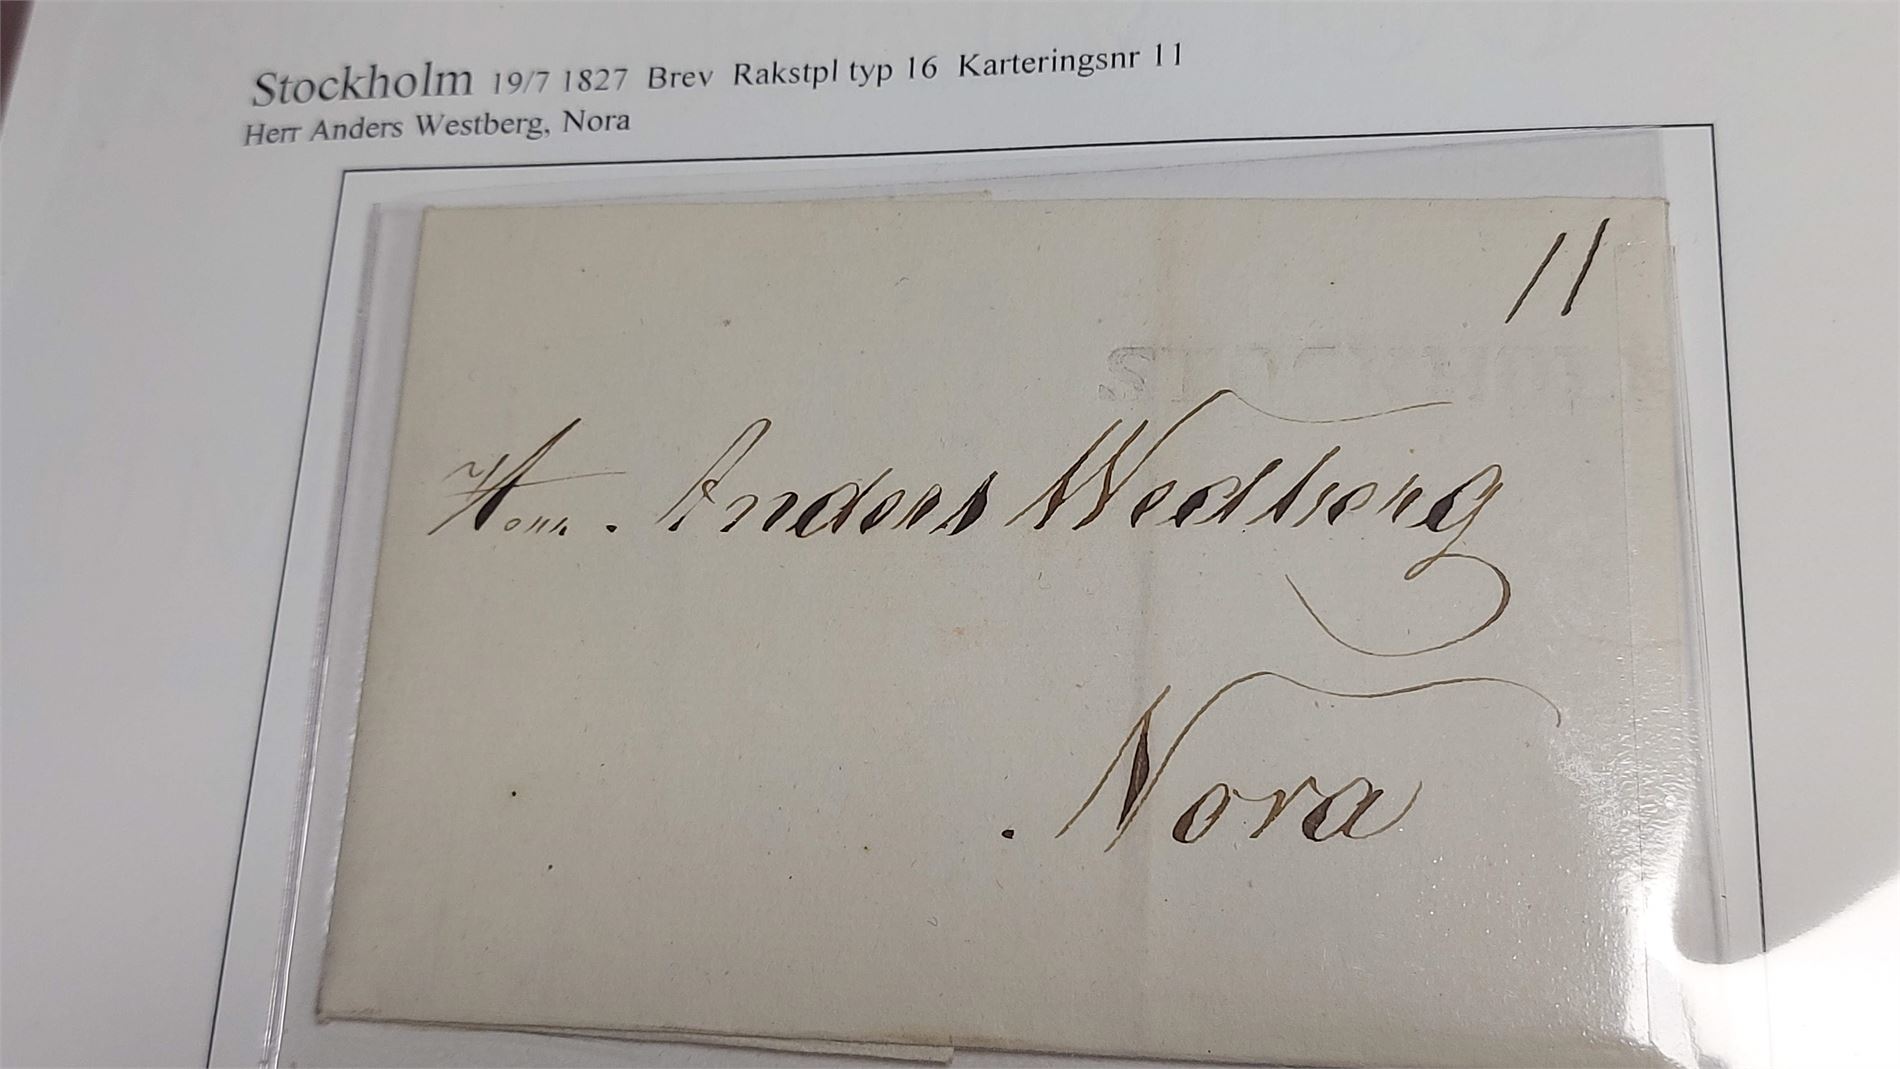 Stockholm 19/7 1827 Brev Rakstpl typ 16 Karteringsnr 11
Herr Anders Westberg, Nora
11
Herr. Anders Wedberg
. Nora